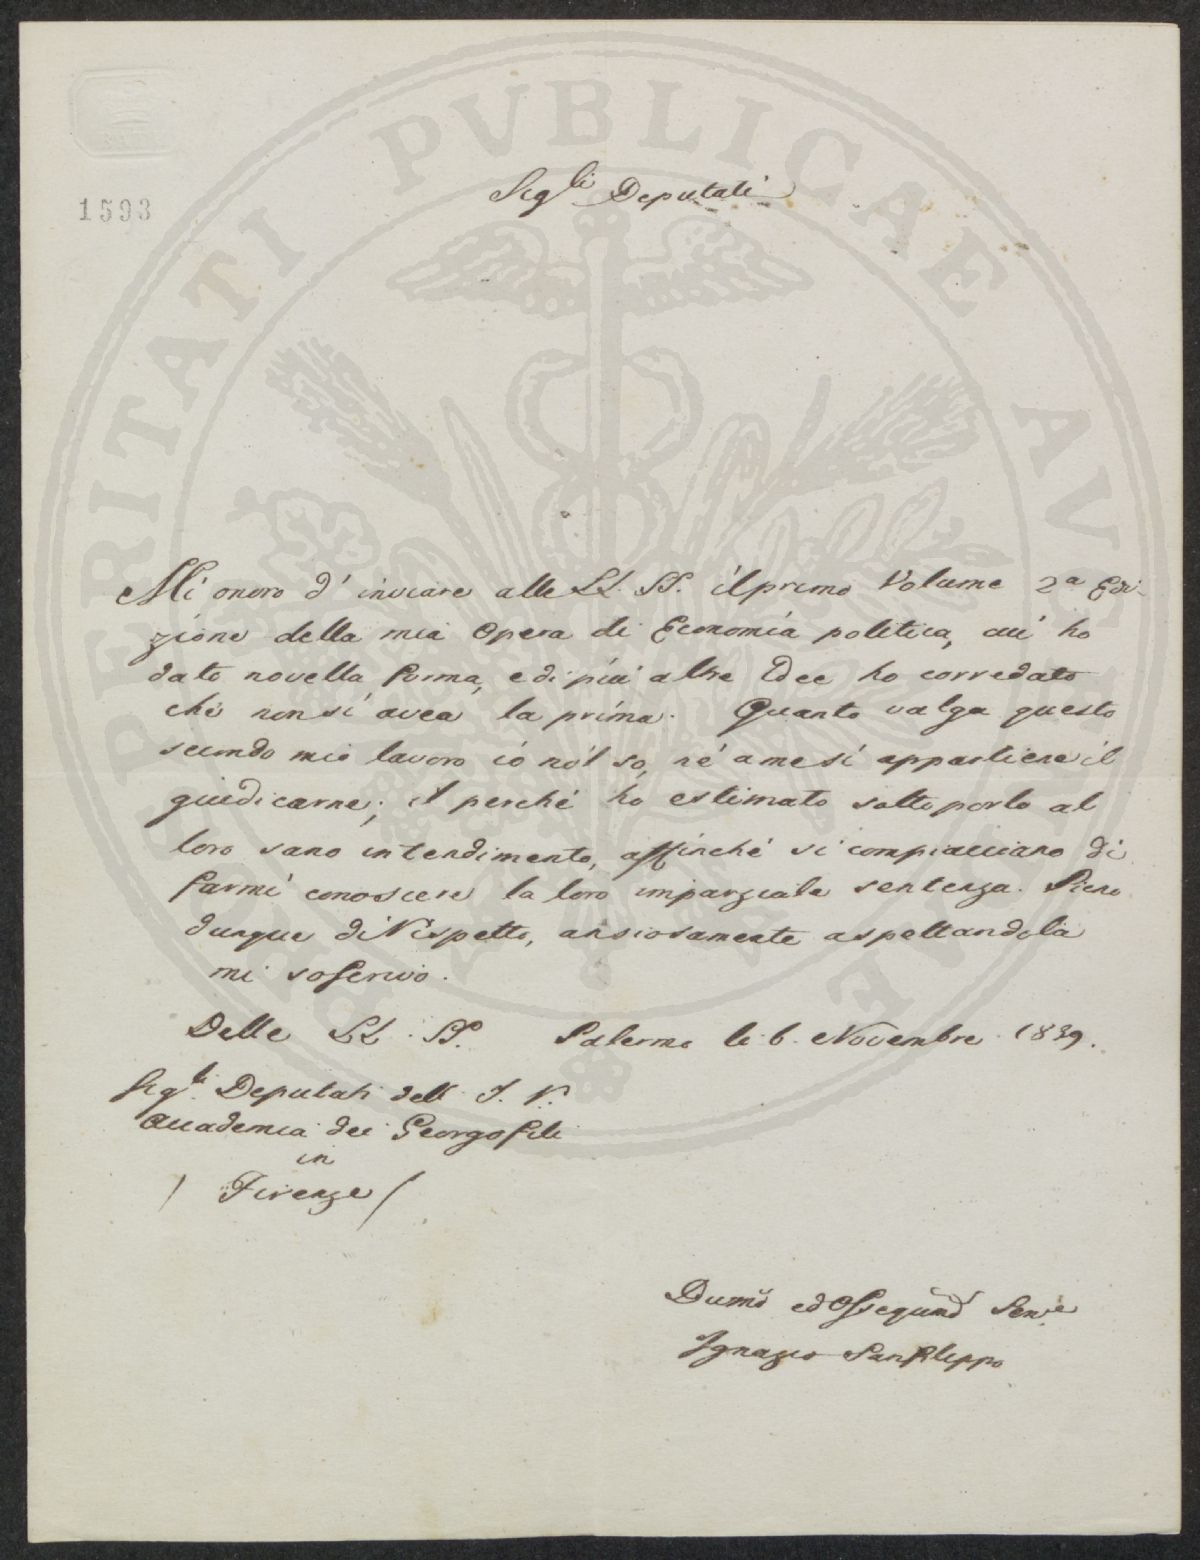 1593
Sig.li Deputati
Mi onoro d' inviare alle LL. SS. il primo Volume 2a Edi-
zione della mia Opera di Economia politica, cui ho
dato novella forma, e di più altre Idee ho corredato
che non si avea la prima. Quanto valga questo
secondo mio lavoro io nol so, né a me si appartiene il
giudicarne; il perché ho estimato sottoporlo al
loro sano intendimento, affinché si compiacciano di
farmi conoscere la loro imparziale sentenza. Pieno
dunque di Rispetto, ansiosamente aspettandola
mi soscrivo.
Delle LL. SS. Palermo li 6. Novembre 1839.
Sig.li Deputati dell I. R.
Accademia dei Georgofili
in
/ Firenze /
Dummo ed Ossequmo Serv.e
Ignazio Sanfilippo
PROSPERITATI PVBLICAE AVGENDAE